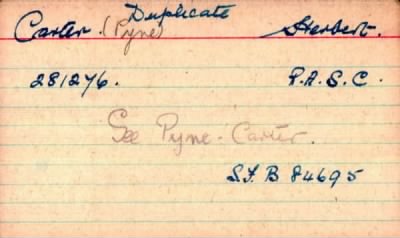 Duplicate
Carter. (Pyne) Herbert.
281276. R.A.S.C.
See Pyne-Carter.
S.F. B 84695